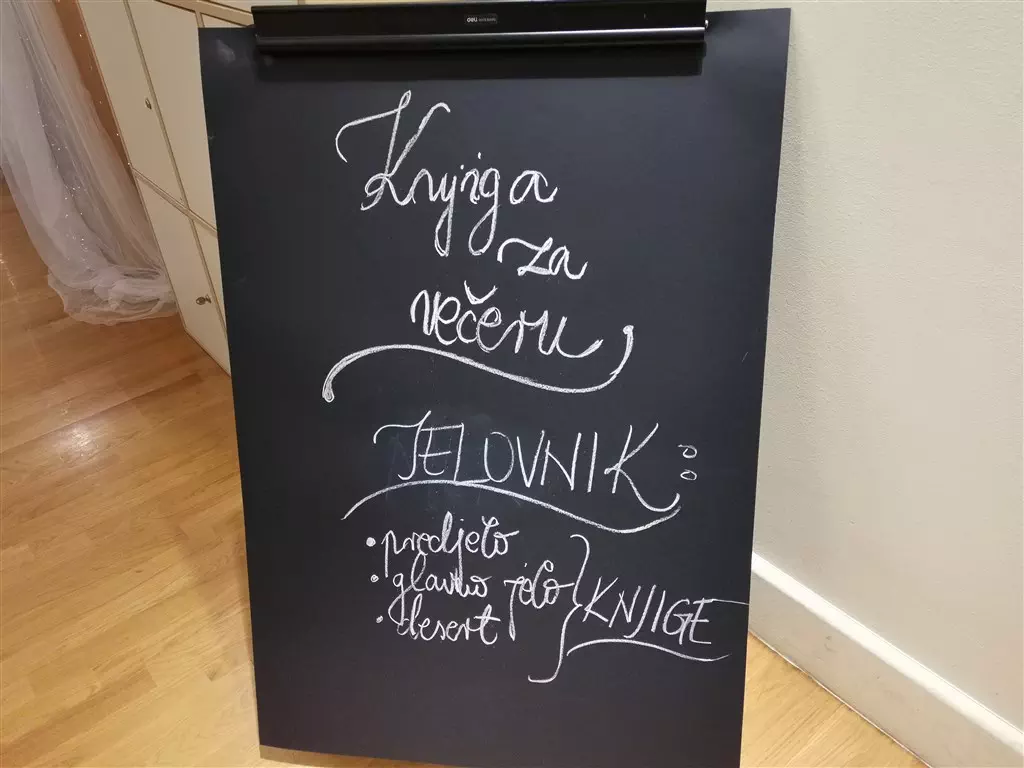 deli
Knjiga
za
večeru
JELOVNIK:
• predjelo
• glavno jelo
• desert
} KNJIGE